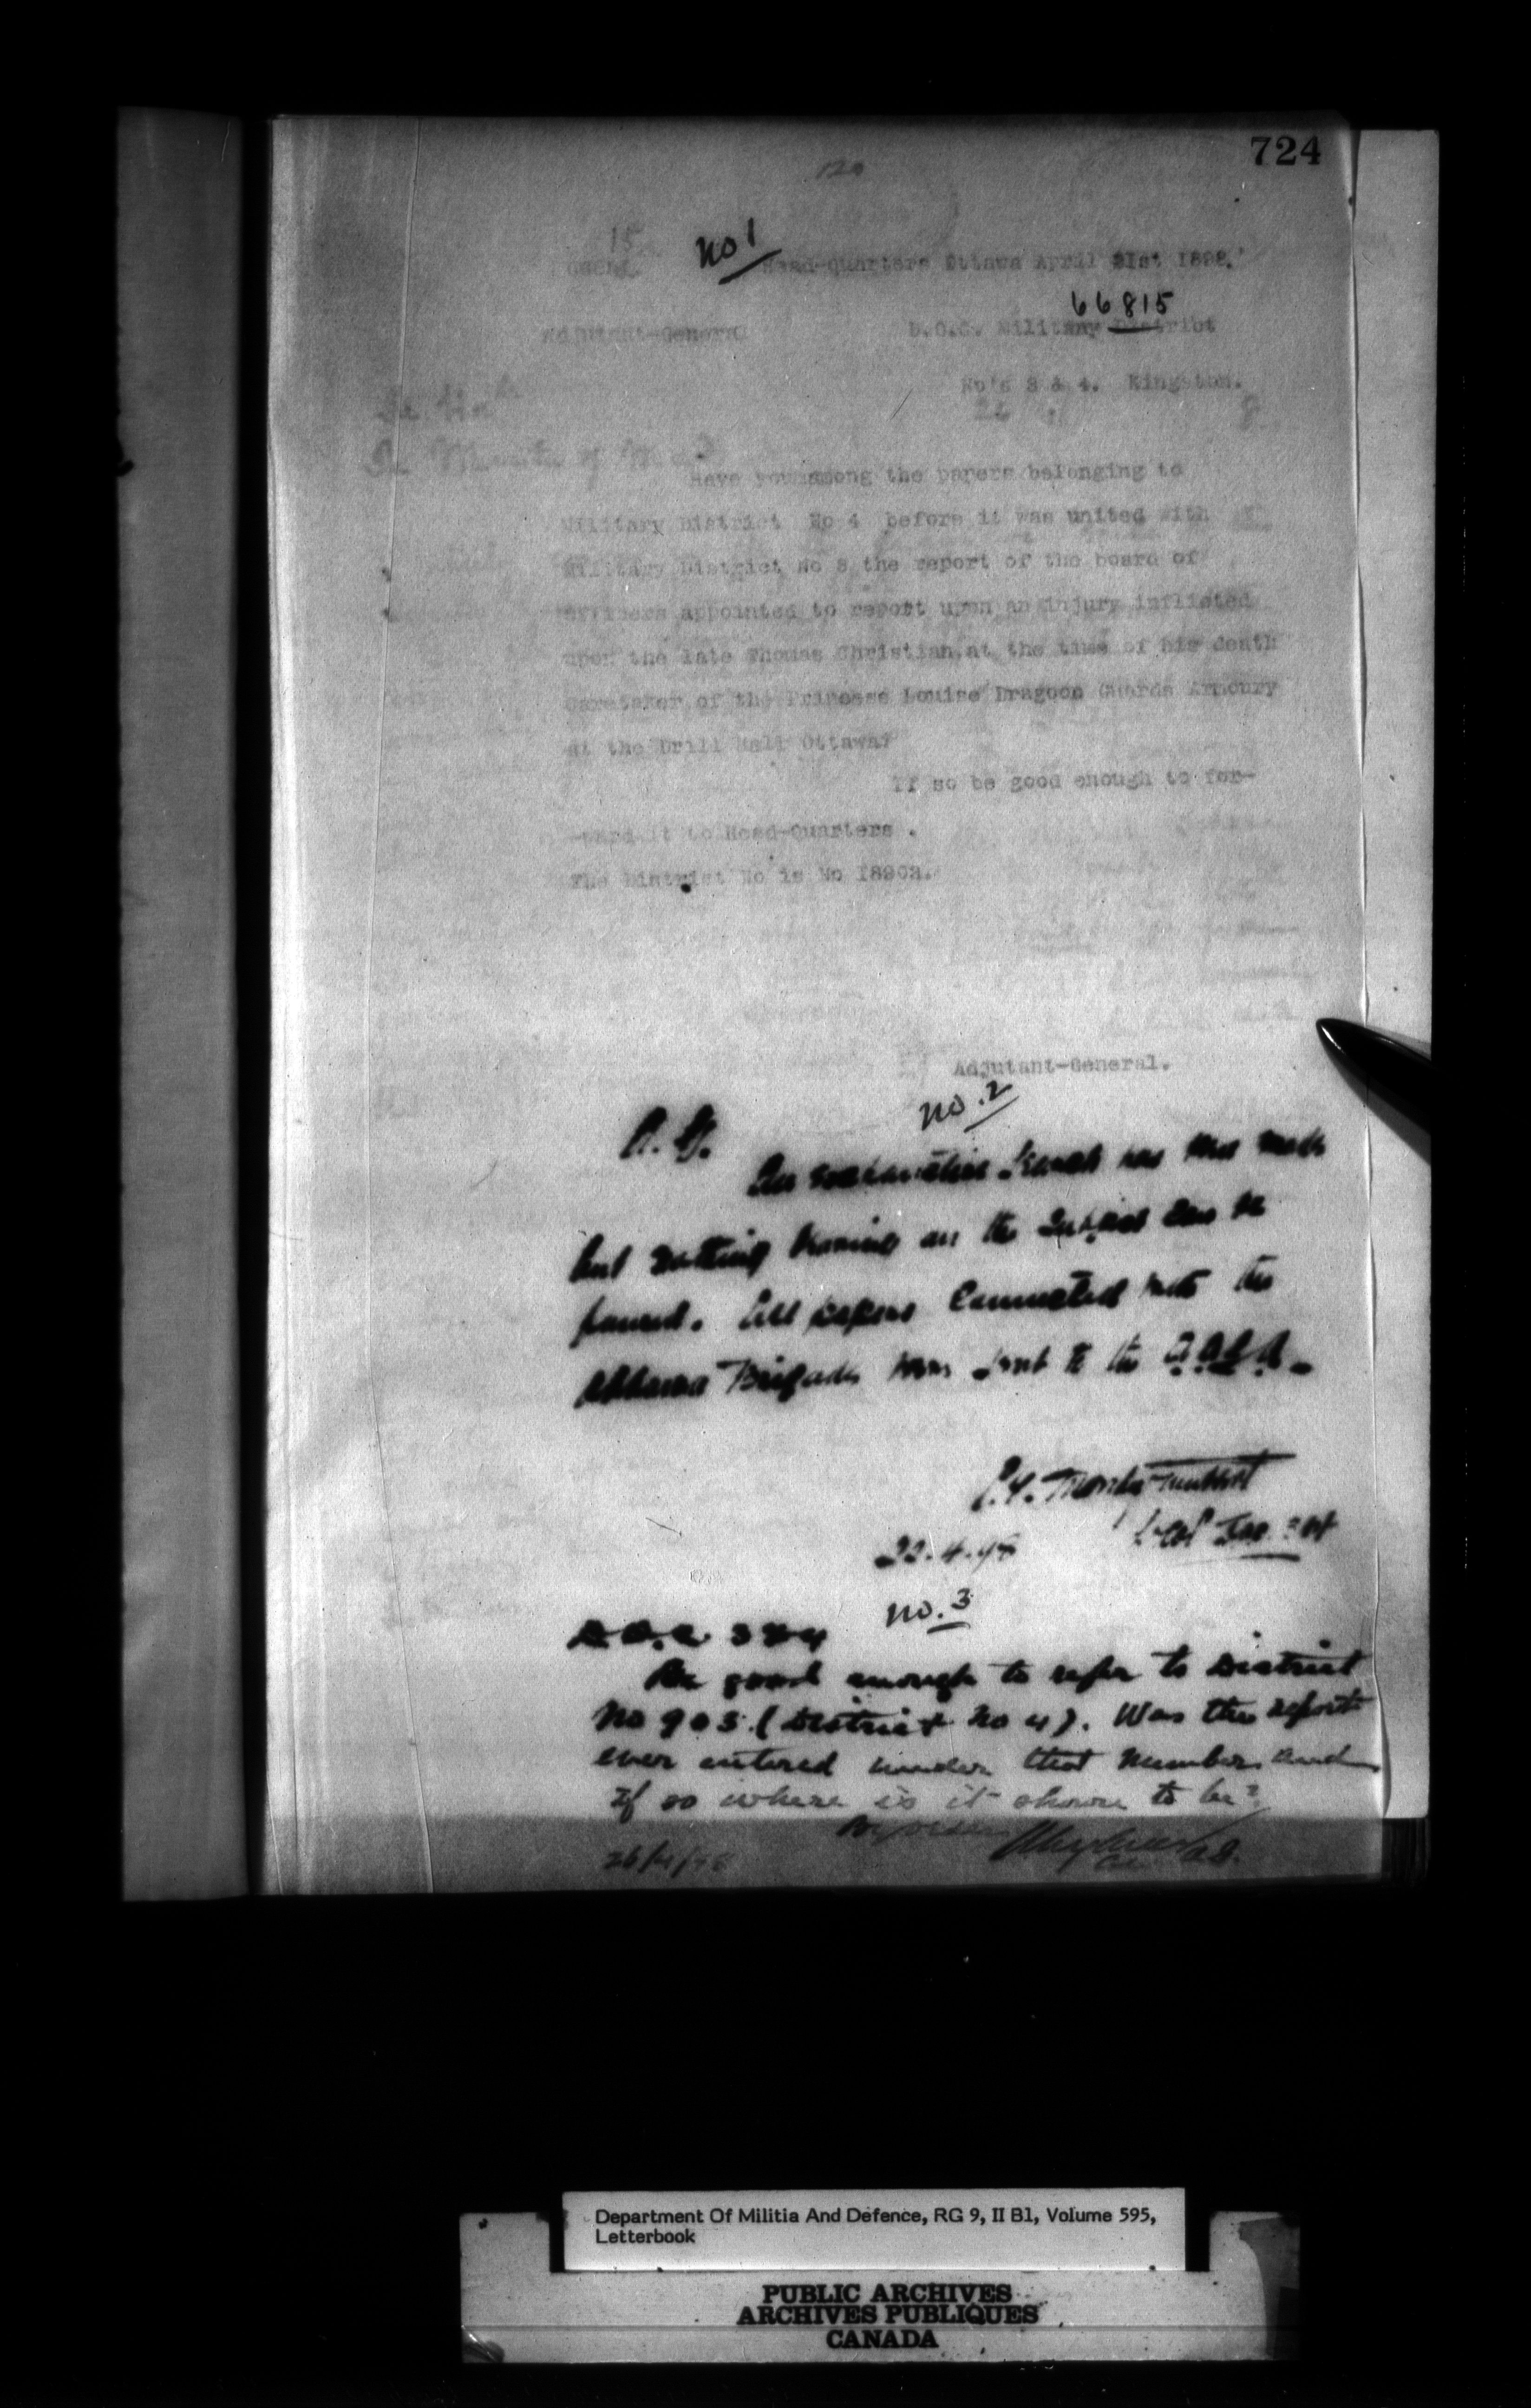 724
120
15
No 1
Head-Quarters Ottawa April 21st 1898.
66815
Adjutant-General
D.O.C. Military District
No's 3 & 4. Kingston.
Have you among the papers belonging to
Military District No 4 before it was united with
Military District No 3 the report of the board of
officers appointed to report upon an injury inflicted
upon the late Thomas Christian, at the time of his death
Caretaker of the Princess Louise Dragoon Guards Armoury
at the Drill Hall Ottawa?
If so be good enough to for-
-ward it to Head-Quarters.
The District No is No
Adjutant-General.
No. 2
A. G.
An exhaustive search has been made
but nothing bearing on the subject can be
found. All papers connected with the
Ottawa Brigade were sent to the
22.4.98
No. 3
D.O.C. 3 & 4
Be good enough to refer to District
No 903 (District No 4). Was the report
ever entered under that number and
if so where is it shown to be?
By order
26/4/98
Department Of Militia And Defence, RG 9, II B1, Volume 595,
Letterbook
PUBLIC ARCHIVES
ARCHIVES PUBLIQUES
CANADA